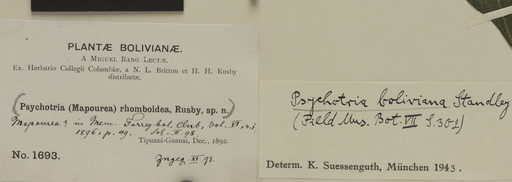 PLANTÆ BOLIVIANÆ.
A MIGUEL BANG LECTÆ.
Ex. Herbario Collegii Columbiæ, a N. L. Britton et H. H. Rusby
distributæ.
(Psychotria (Mapourea) rhomboidea, Rusby, sp. n.)
Mapourea? in Mem. Torrey bot. Club, Vol.
1896, p. 49.
Tipuani-Guanai, Dec., 1892.
No. 1693.
Psychotria boliviana Standley
(Field Mus. Bot. VII S. 302)
Determ. K. Suessenguth, München 1943.